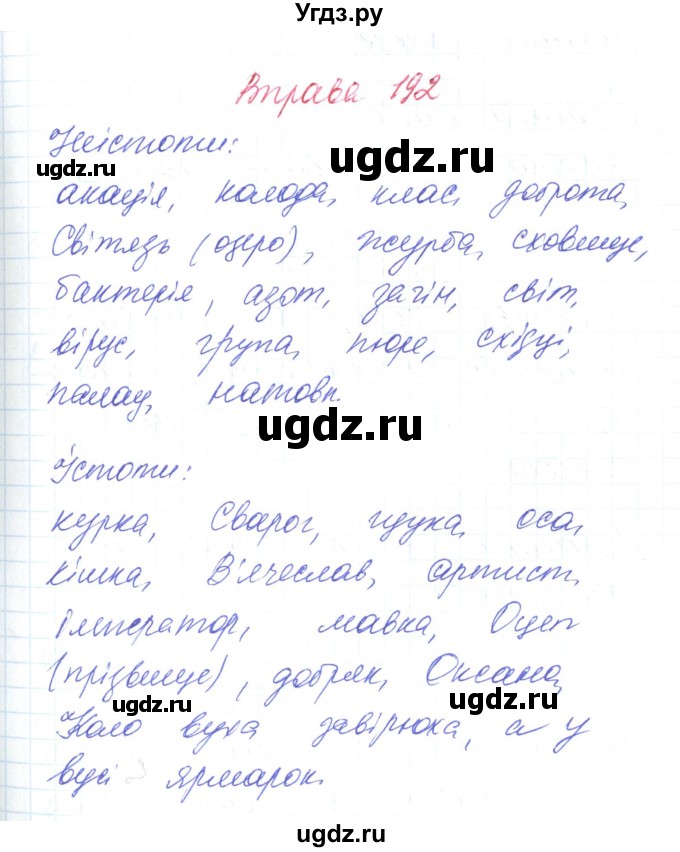 Угдз.ру
Вправа 192
Неістоти:
ugdz.ru
ugdz.ru
акація, колода, клас, доброта,
Світязь (озеро), журба, сховище,
бактерія, азот, загін, світ,
вірус, група, пюре, східці,
палац, натовп.
ugdz.ru
Істоти:
курка, Сварог, щука, оса,
кішка, В'ячеслав, артист,
імператор, мавка, Оцеп
(прізвище), добряк, Оксана,
ugdz.ru
ugdz.ru
Коло вуха завірюха, а у
вусі ярмарок.
ugdz.ru